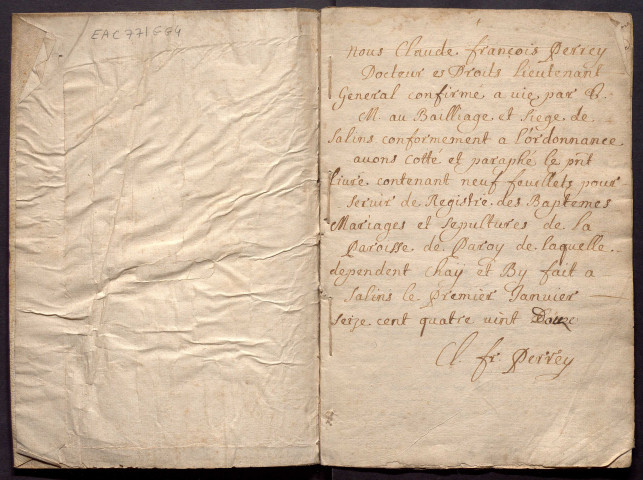 EAC771574
nous Claude françois Perrey
Docteur es Droits lieutenant
General confirmé a vie par S.
M. au Bailliage et siege de
Salins conformement a l'ordonnance
auons cotté et paraphé le pnt
liure contenant neuf feuillets pour
seruir de Registre des Baptemes
Mariages et sepultures de la
Paroisse de Paroy de laquelle
dependent Chaÿ et By fait a
Salins le premier Januier
seize cent quatre uint Douze
Cl. fr. Perrey